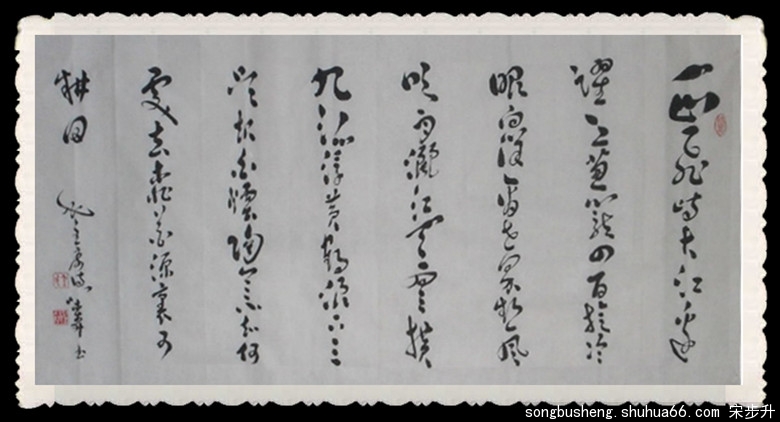 一山飛峙大江邊
躍上葱蘢四百旋冷
眼向洋看世界熱風
吹雨灑江天雲橫
九派浮黃鶴浪下三
吳起白煙陶令不知何
處去桃花源裏可
耕田
songbusheng.shuhua66.com 宋步升